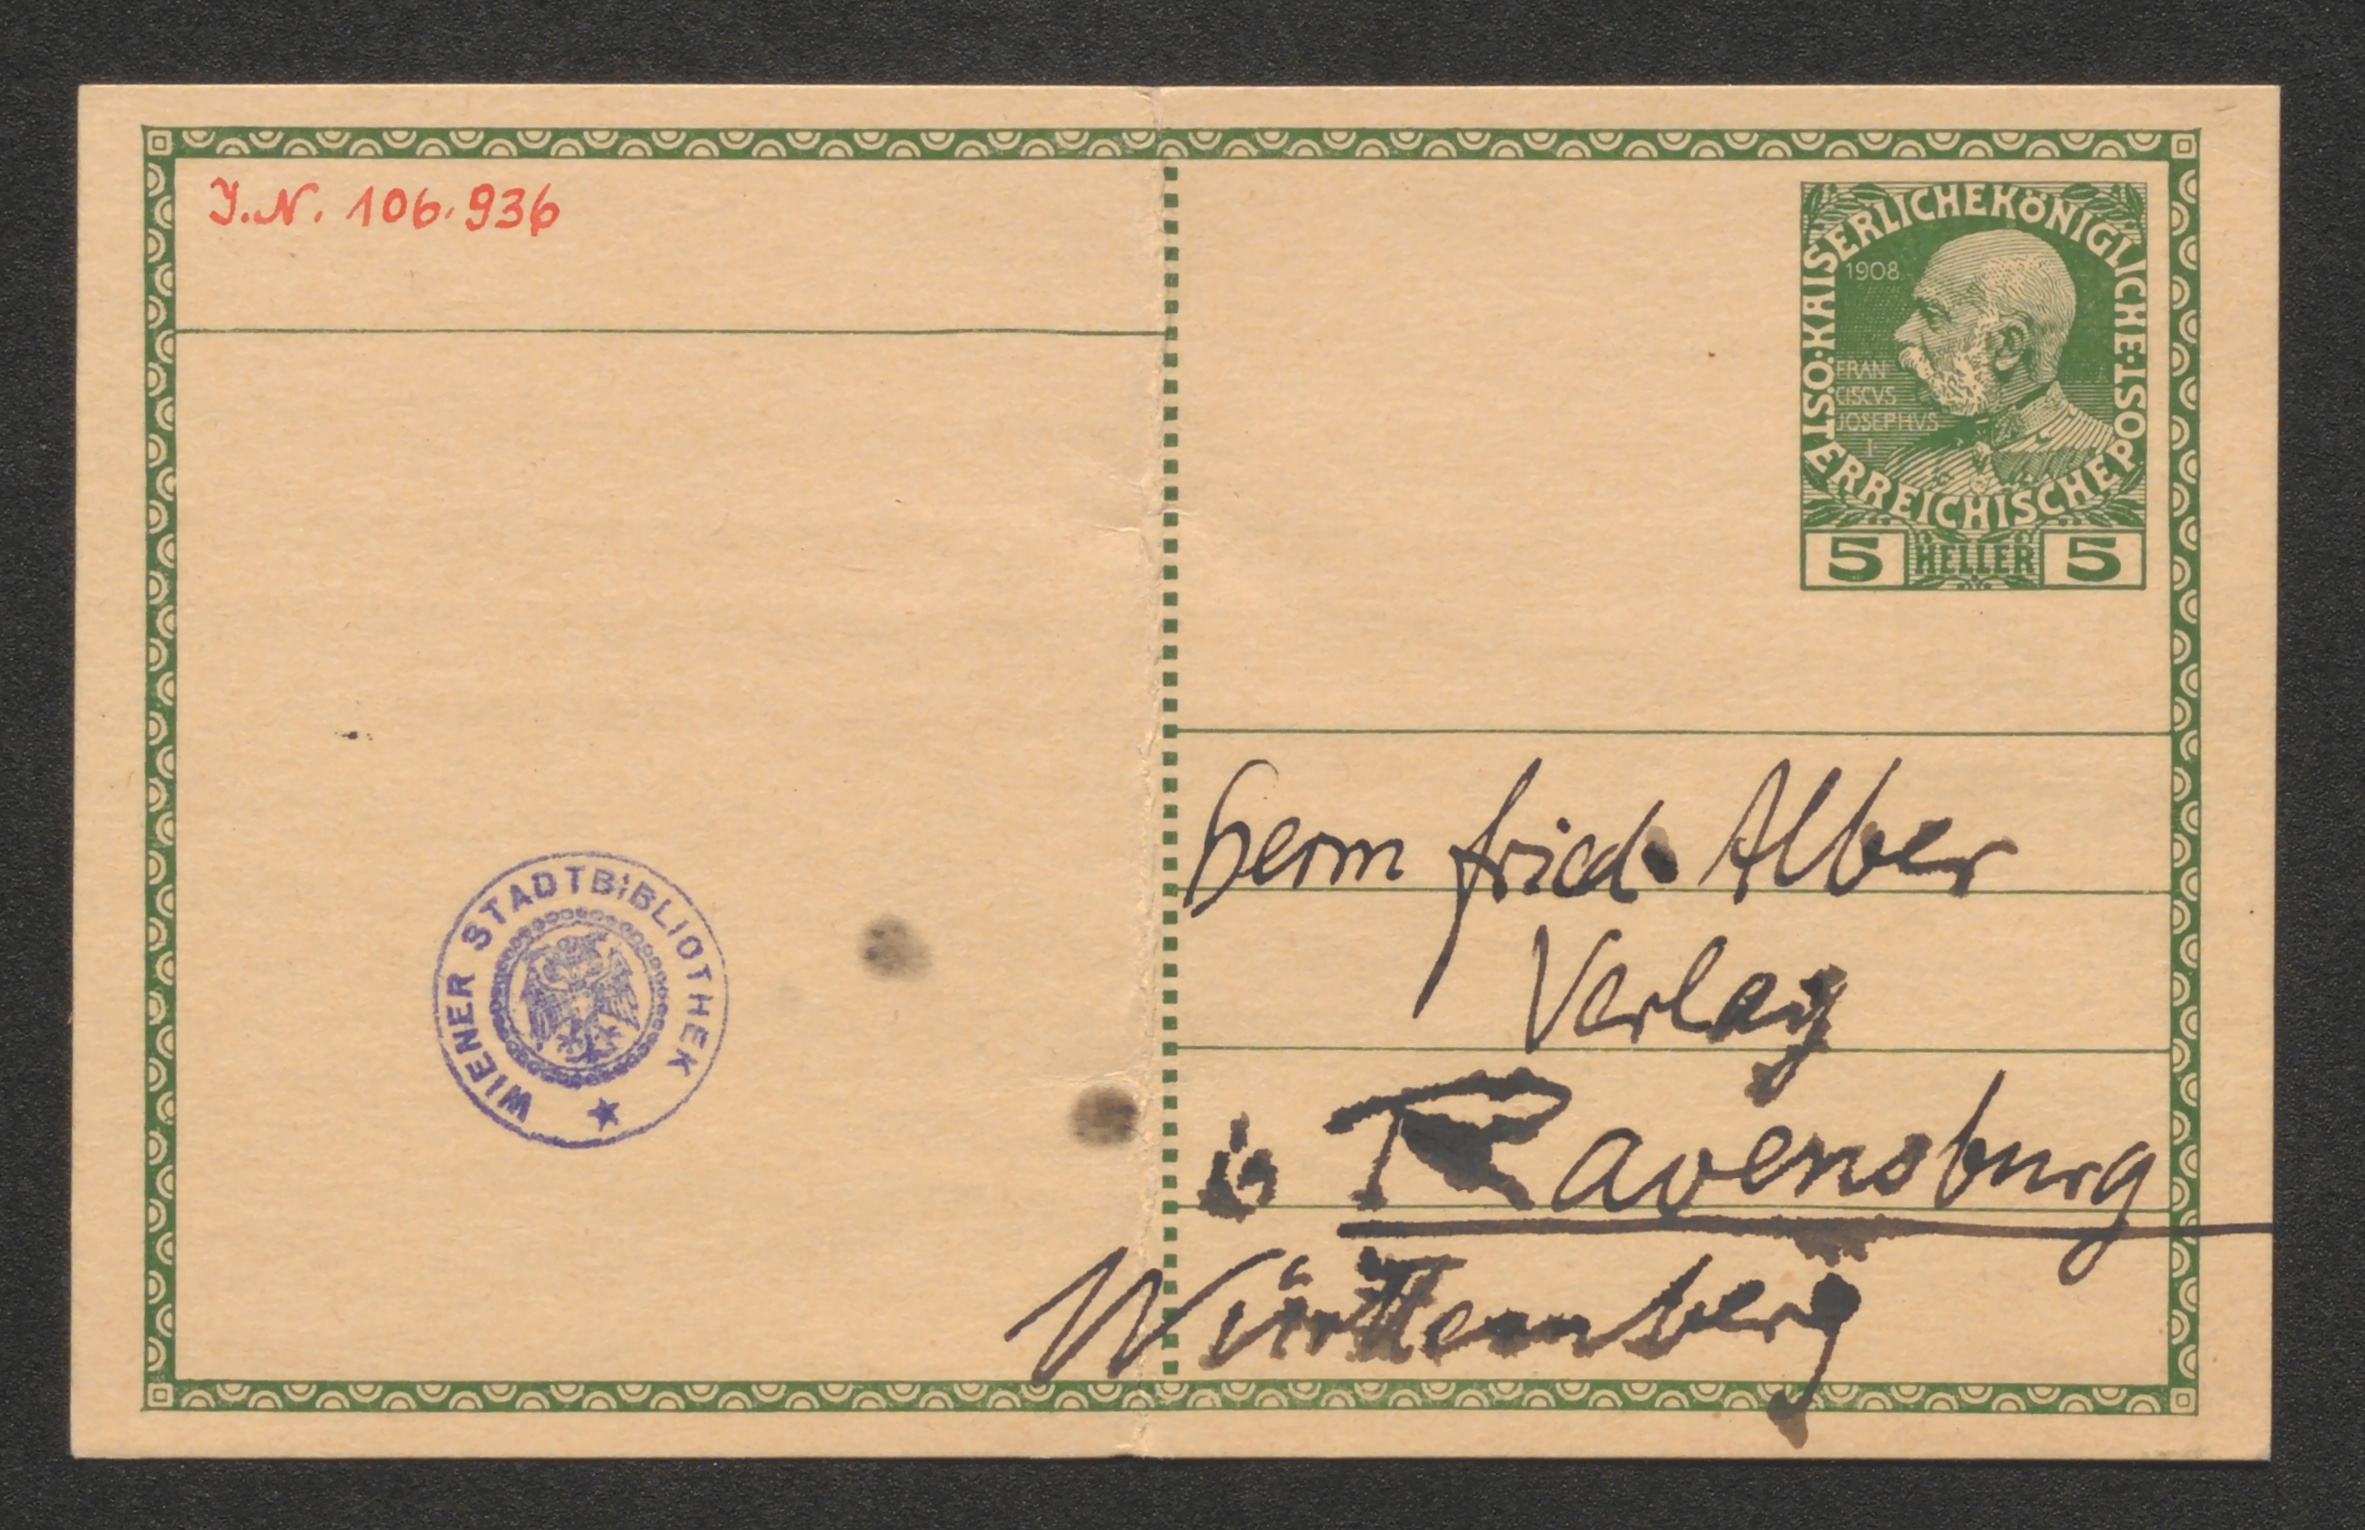 J.N. 106.936
KAISERLICHEKÖNIGLICHE·POST·
ÖSTERREICHISCHE
1908
FRAN
CISCVS
JOSEPHVS
I
5 HELLER 5
WIENER STADTBIBLIOTHEK
Herrn Fried. Alber
Verlag
in Ravensburg
Württemberg